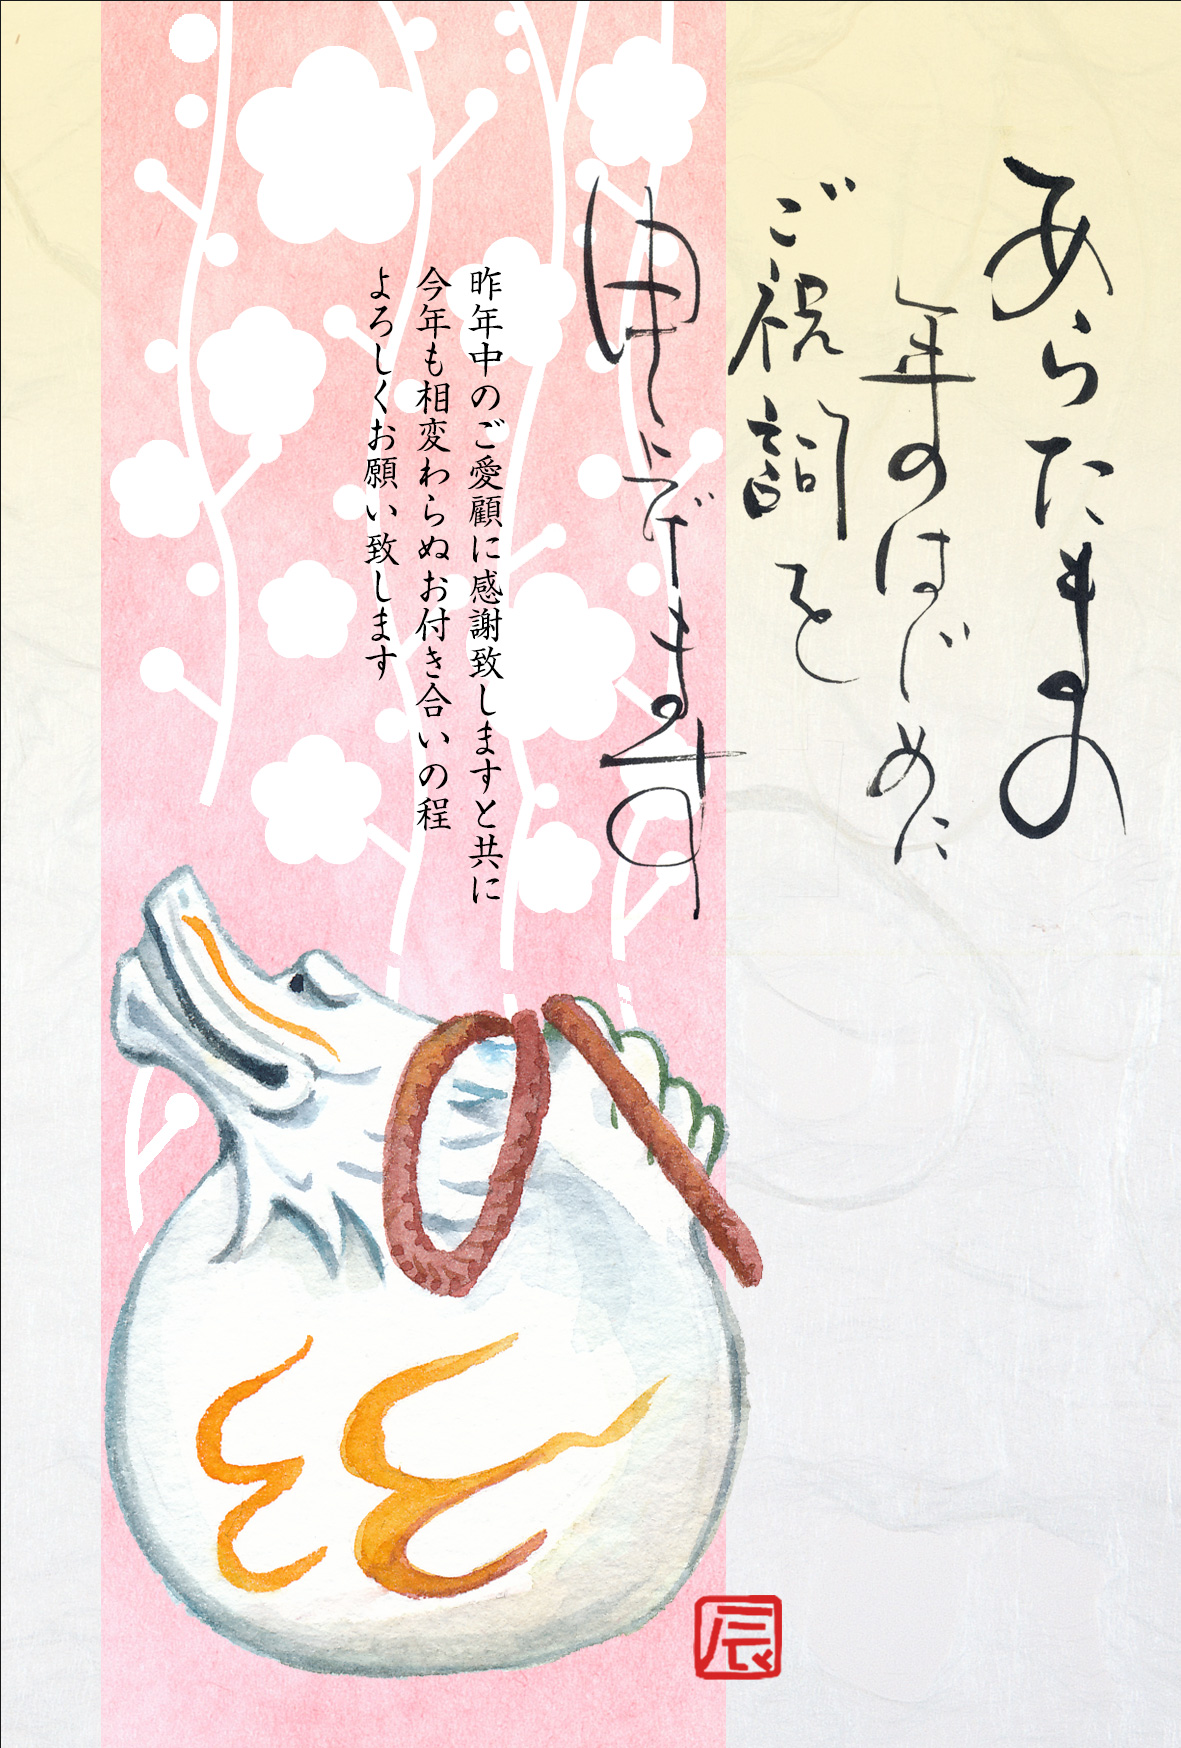 あらたまの
年のはじめに
ご祝詞を
申し上げます
昨年中のご愛顧に感謝致しますと共に
今年も相変わらぬお付き合いの程
よろしくお願い致します
辰